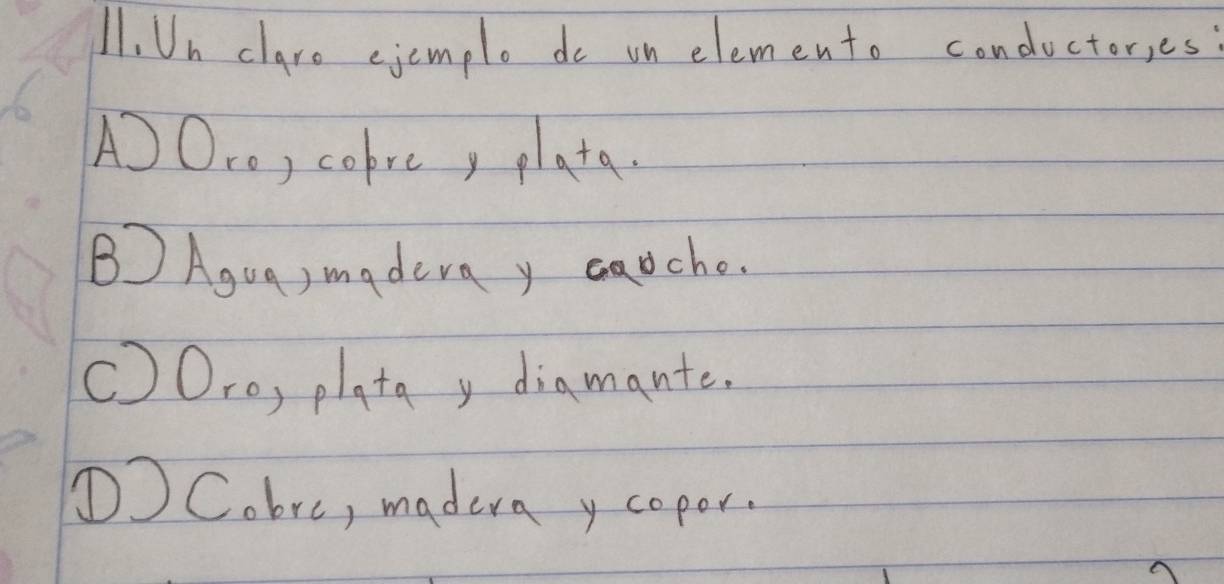 11. Un claro ejemplo de un elemento conductor, es:
A) Oro, cobre y plata.
B) Agua, madera y caucho.
C) Oro, plata y diamante.
D) Cobre, madera y copor.